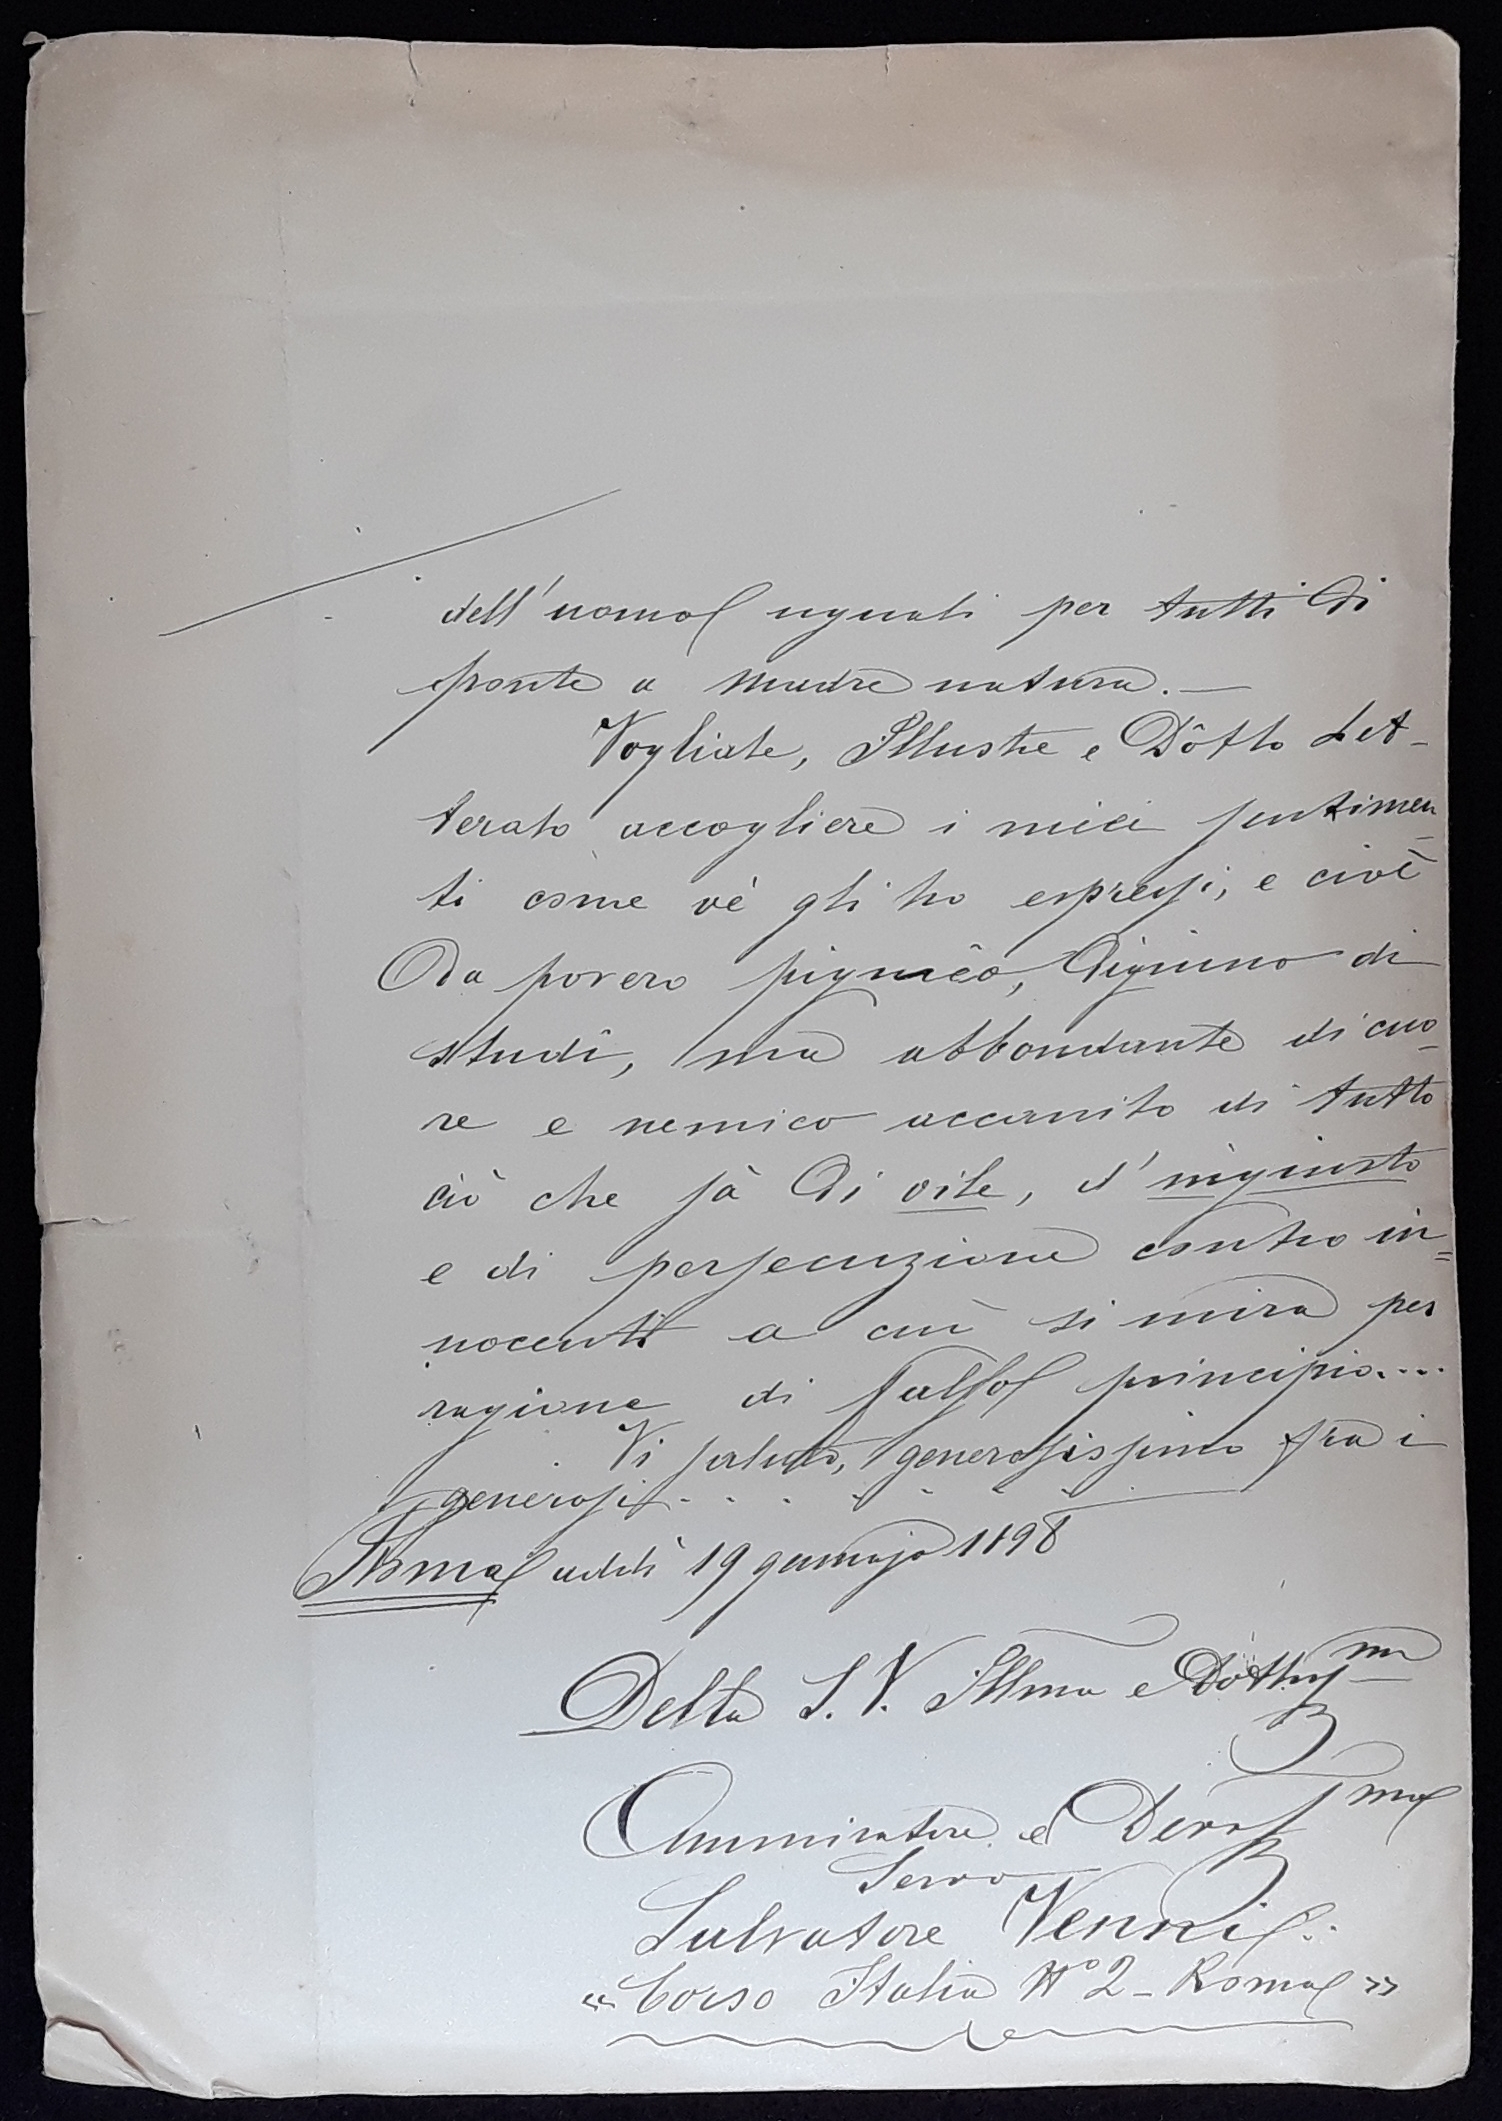 dell'uomo uguali per tutti di
fronte a madre natura. —
Vogliate, Illustre e Dôtto Let-
terato accogliere i miei sentimen-
ti come vè gli ho espressi, e cioè
Da povero pigmêo, digiuno di
studî, ma abbondante di cuo-
re e nemico accanito di tutto
ciò che sà di vile, d'ingiusto
e di persecuzione contro in=
nocenti a cui si mira per
ragione di falso principio....
Vi saluto, generosissimo fra i
generosi. . . . . . . .
Roma addì 19 gennajo 1898
Della S. V. Illma e Dottissma
Ammiratore e Devssmo
Servo
Salvatore Venni
"Corso Italia N° 2 - Roma"